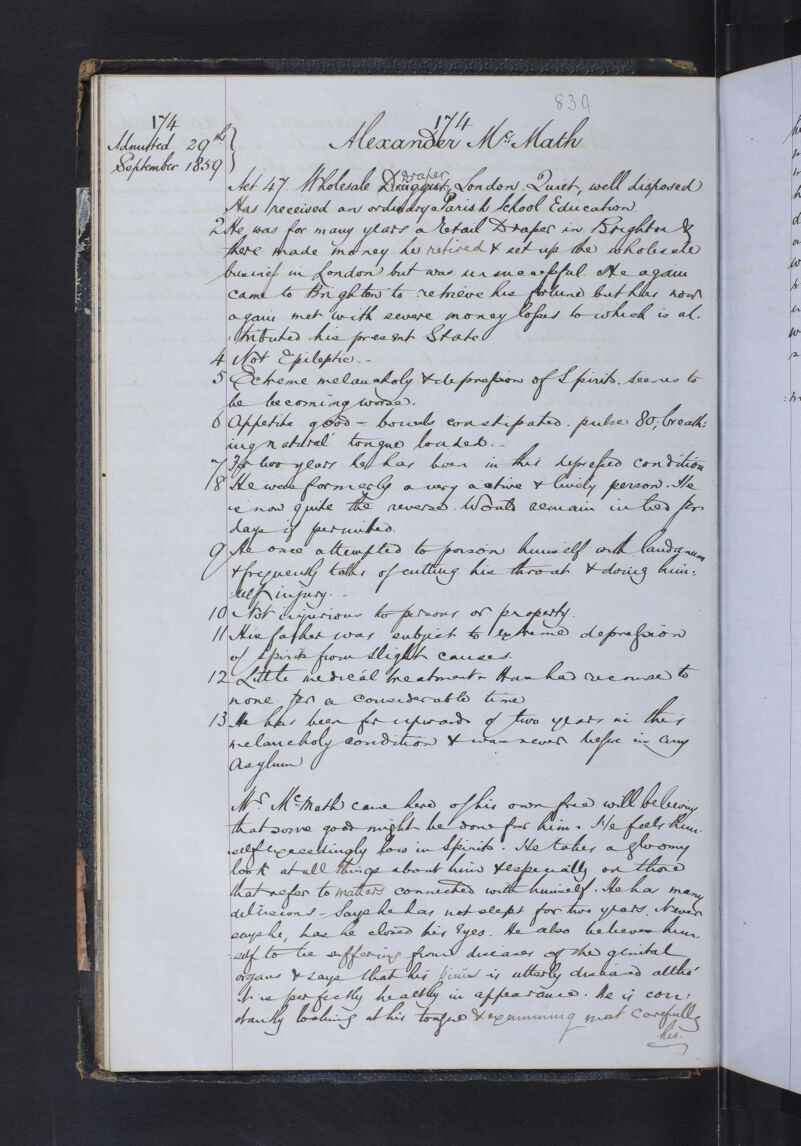 839
174
174
Admitted 29th
September 1859
Alexander Mc. Math
Aet 47. Wholesale Druggist Draper, London. Quiet, well disposed
Has received an ordinary Parish School Education.
2 He was for many years a retail Draper in Brighton &
there made money he retired & set up the wholesale
business in London but was unsuccessful. He again
came to Brighton to retrieve his fortune but has now
again met with severe money losses to which is at-
:tributed his present State
4 Not Epileptic. -
5 Extreme melancholy & depression of Spirits. seems to
be becoming worse.
6 Appetite good - bowels constipated. pulse 80, breath:
ing natural tongue loaded. -
7 For two years he has been in this depressed condition
8 He was formerly a very active & lively person. He
is now quite the reverse. Would remain in bed for
days if permitted.
9 He once attempted to poison himself with laudanum
& frequently talks of cutting his throat & doing him:
:self injury. -
10 Not injurious to persons or property.
11 His father was subject to extreme depression
of Spirits from slight causes.
12 Little medical treatment. Has had recourse to
none for a considerable time
13 He has been for upwards of two years in this
melancholy condition & was never before in any
Asylum
Mr. Mc. Math came here of his own free will believing
that some good might be done for him. He feels him-
self exceedingly low in Spirits. He takes a gloomy
look at all things about him & especially on those
that refer to matters connected with himself. He has many
delusions - Says he has not slept for two years. Never
says he, has he closed his Eyes. He also believes him
self to be suffering from disease of the genital
organs & says that his penis is utterly diseased altho'
it is perfectly healthy in appearance. He is con:
stantly looking at his tongue & examining most carefully
his.